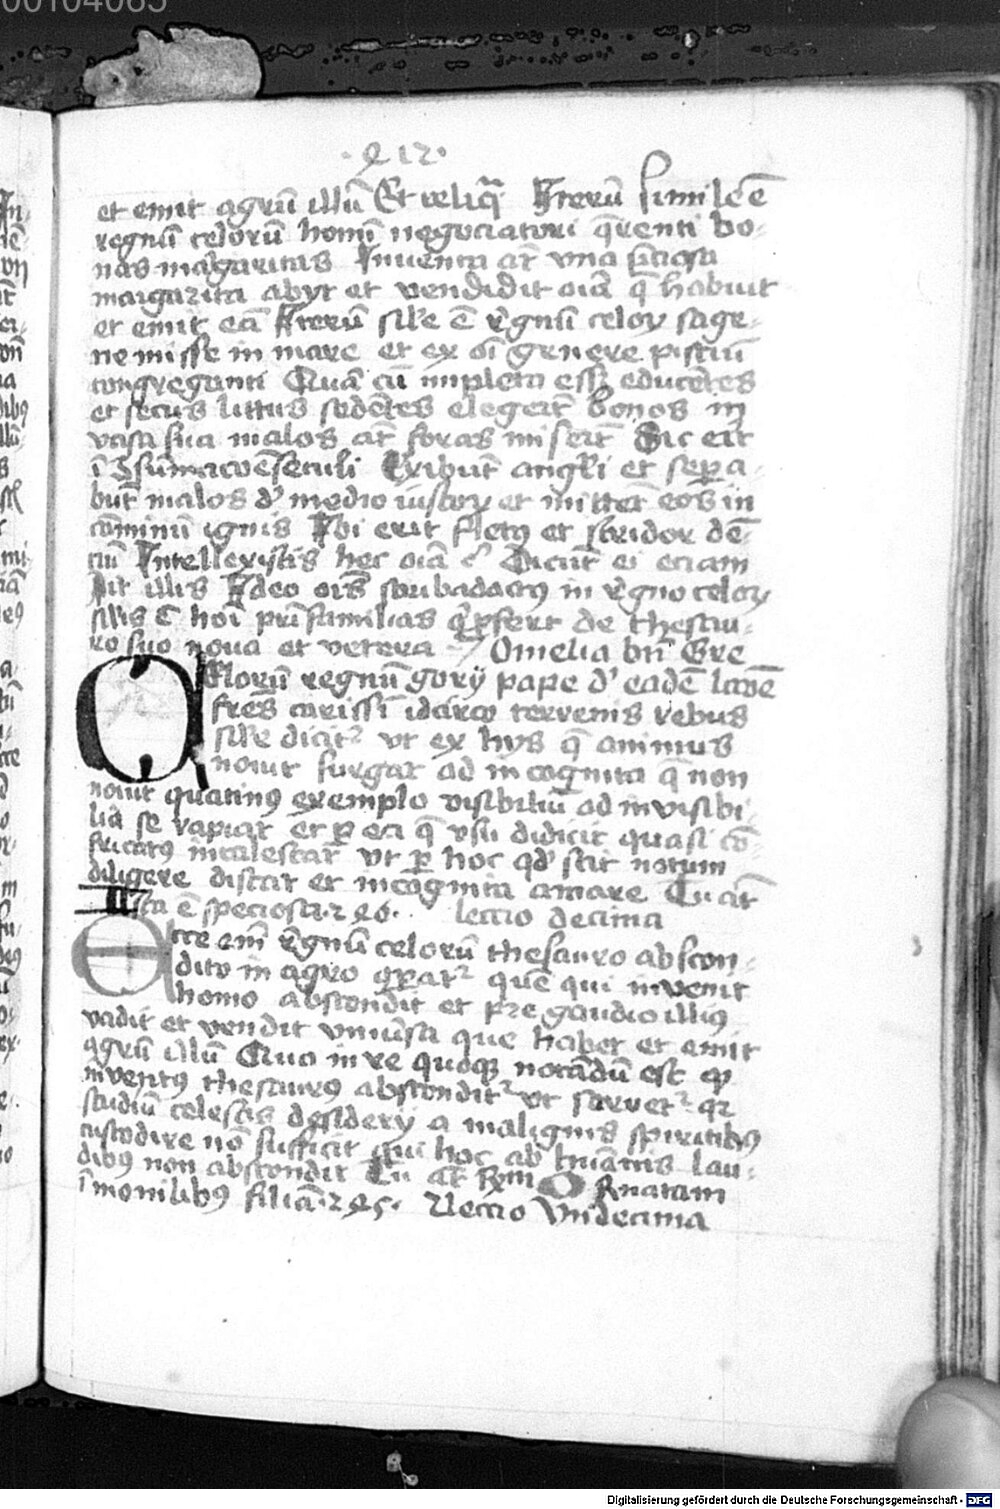 00104065
·212·
et emit agrū illū Et reliq̄ Iterū simile ē
regnū celorū homī negociatori q̄renti bo-
nas margaritas Inuenta at̄ vna p̄ciosa
margarita abyt et vendidit oīa q̄ habuit
et emit eā Iterū sile ē r̄gnū celoꝝ sage-
ne misse in mare et ex oī genere pisciū
congreganti Quā cū impleta esset educētes
et secus littus sedētes elegerūt bonos in
vasa sua malos at̄ foras miserūt Sic erit
ī ꝯsūmacōe seculi Exibūt angeli et sepa-
būt malos d' medio iustoꝝ et mittēt eos in
cāminū ignis Ibi erit fletꝰ et stridor dē-
ciū Intellexistis hec oīa ? Dicūt ei eciam
Ait illis Ideo oīs scriba doctꝰ in r̄gno celoꝝ
silis ē hoī pr̄ifamilias q̇ ꝓfert de thesau-
ro suo noua et vetera / Omelia bti Gre
Celorū regnū gorij pape d' eadē lccōe
fres carissimi idcirco terrenis rebus
sile dicit̄ vt ex hys q̄ animus
nouit surgat ad incognita q̄ non
nouit quatinꝰ exemplo visibiliū ad invisibi-
lia se rapiat et ꝑ ea q̄ vsu didicit quasi cō-
fricatꝰ incalescat vt ꝑ hoc qd' scit notum
diligere discat et incognita amare Tu at̄
Ista ē speciosa · 246 · lectio decima
Ecce em̄ r̄gnū celorū thesauro abscon-
dito in agro ꝯparat̄ quē qui invenit
homo abscondit et pre gaudio illiꝰ
vadit et vendit vniūsa que habet et emit
agrū illū Qua in re quoqꝫ notādū est ꝙ
inventꝰ thesaurus abscondit̄ vt servet̄ qꝛ
studiū celestis desiderij a malignis spiritibꝰ
custodire nō sufficit qui hoc ab humanis lau-
dibꝰ non abscondit Tu at̄ Rm Ornatam
ī monilibꝰ filiā · 245 · Lectio Vndecima
Digitalisierung gefördert durch die Deutsche Forschungsgemeinschaft - DFG